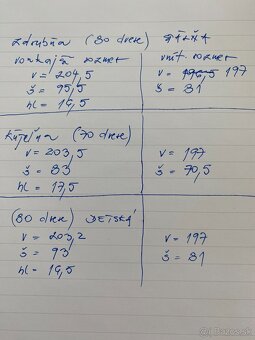 zárubňa (80 dvere)
vonkajší rozmer
v = 204,5
š = 95,5
hl = 16,5
vnút. rozmer
v = 196,5 197
š = 81
kúpeľňa (70 dvere)
v = 203,5
š = 83
hl = 17,5
v = 197
š = 70,5
(80 dvere) DETSKÁ
v = 203,2
š = 93
hl = 16,5
v = 197
š = 81
© Bazos.sk